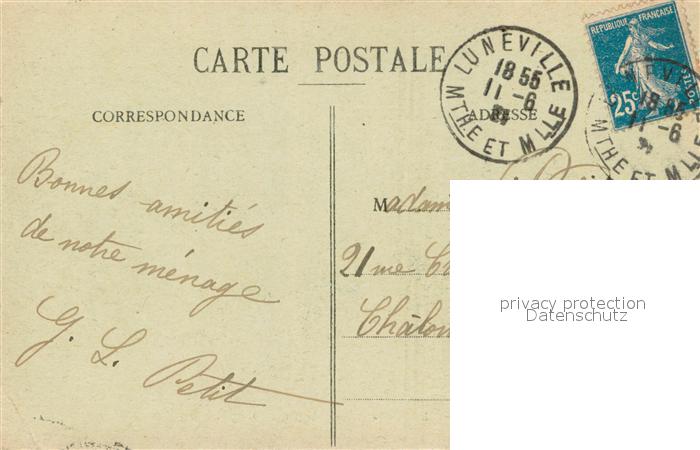 CARTE POSTALE
CORRESPONDANCE
ADRESSE
LUNEVILLE
18 55
11 - 6
MTHE ET MLLE
REPUBLIQUE FRANÇAISE
25c
LUNEVILLE
18 55
11 - 6
MTHE ET MLLE
Bonnes amitiés
de notre ménage
G. L. Petit
Madam
21 rue
Châlon
privacy protection
Datenschutz